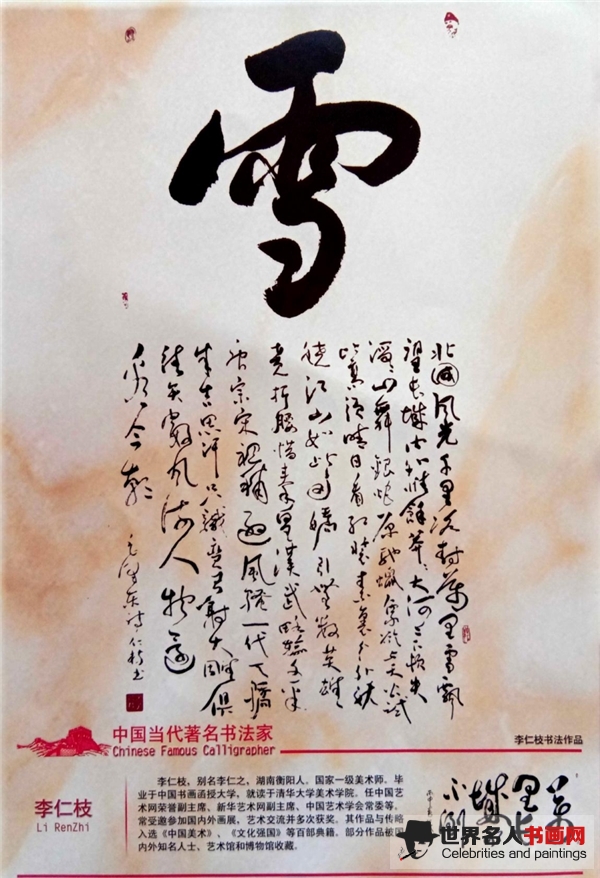 雪
北國风光千里冰封萬里雪飘
望长城内外惟餘莽々大河上下顿失
滔々山舞银蛇原驰蜡象欲与天公试
比高须晴日看红装素裹分外妖
娆江山如此多娇引無数英雄
竞折腰惜秦皇漢武略输文采
唐宗宋祖稍逊风骚一代天骄
成吉思汗只識弯弓射大雕俱
往矣数风流人物还
看今朝
毛泽东诗仁枝书
中国当代著名书法家
Chinese Famous Calligrapher
李仁枝书法作品
李仁枝
Li RenZhi
李仁枝，别名李仁之，湖南衡阳人。国家一级美术师。毕
业于中国书画函授大学，就读于清华大学美术学院。任中国艺
术网荣誉副主席、新华艺术网副主席、中国艺术学会常委等，
常受邀参加国内外画展、艺术交流并多次获奖。其作品与传略
入选《中国美术》、《文化强国》等百部典籍。部分作品被国
内外知名人士、艺术馆和博物馆收藏。
世界名人书画网
Celebrities and paintings